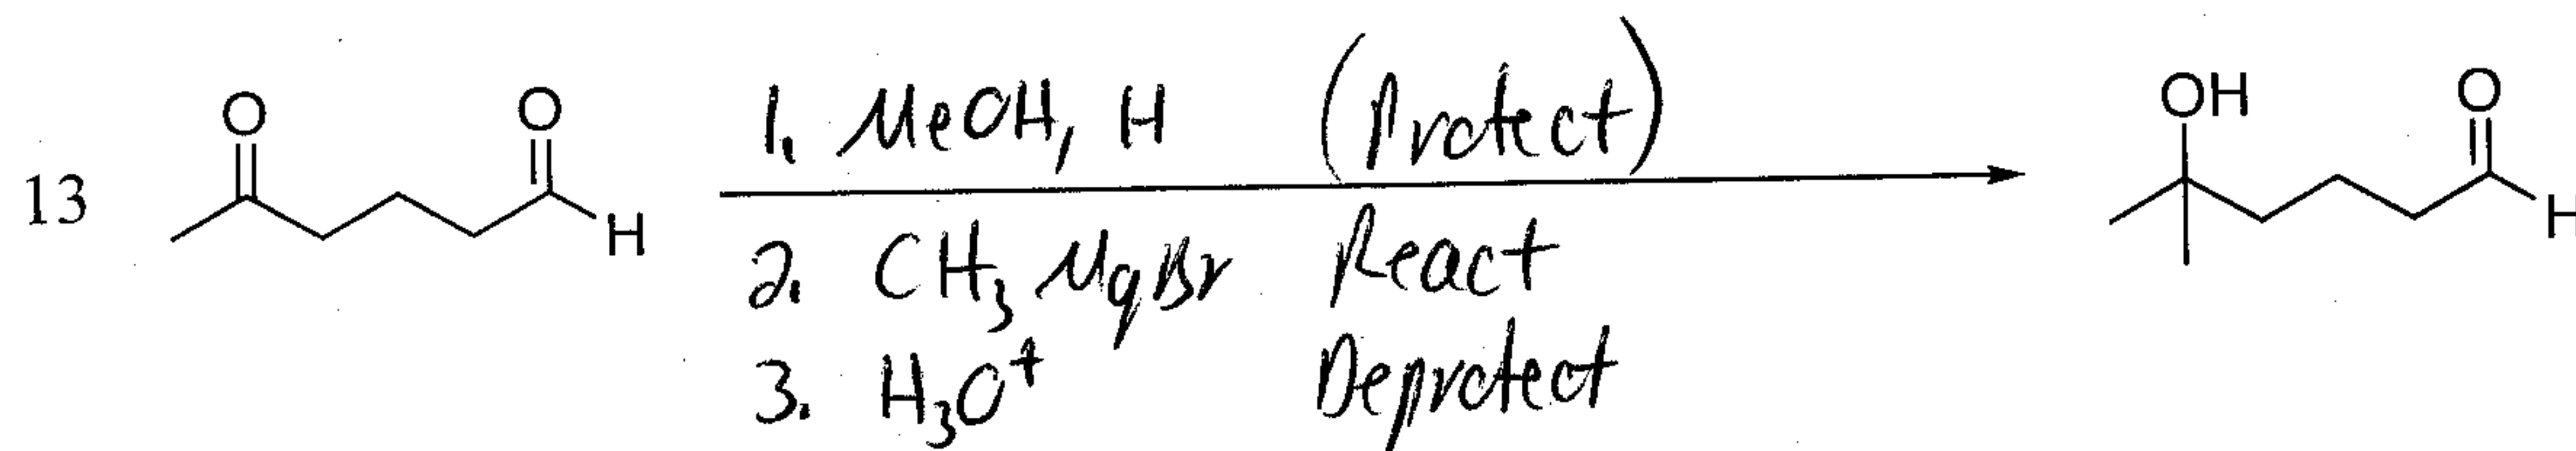 13
O
O
H
1. MeOH, H (Protect)
2. CH3MgBr React
3. H3O+ Deprotect
OH
O
H